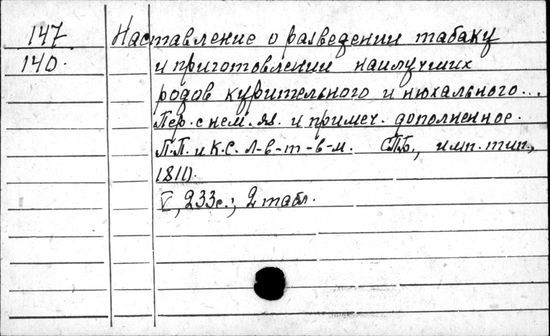 147
140.
Наставление о разведении табаку
и приготовлении наилучших
родов курительного и нюхального...
Пер. с нем. яз. и примеч. дополненное.
П.П. и К.С. Л-в-т-в-м. СПб., имп. тип.,
1810.
V, 233с.; 2 табл.